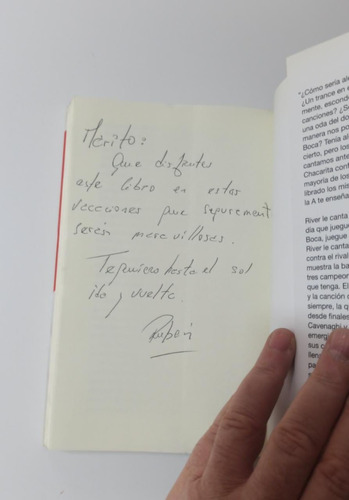 Merito:
Que disfrutes
este libro en estas
vacaciones que seguramente
serán maravillosas.
Te quiero hasta el sol
ida y vuelta.
Ruben
"¿Cómo sería ale
¿Un trance en e
mente, escond
canciones? ¿Se
una oda del do
manera nos po
Boca? Tenía al
cierto, pero los
cantamos ante
Chacarita con
mayoría de los
librado los mis
la A te enseña
River le canta
día que juegue
Boca, juegue
River le canta
contra el rival
muestra la ba
tres campeon
que tenga. El
y la canción d
siempre, la q
desde finales
Cavenaghi y
emerg
sus c
llen
pa